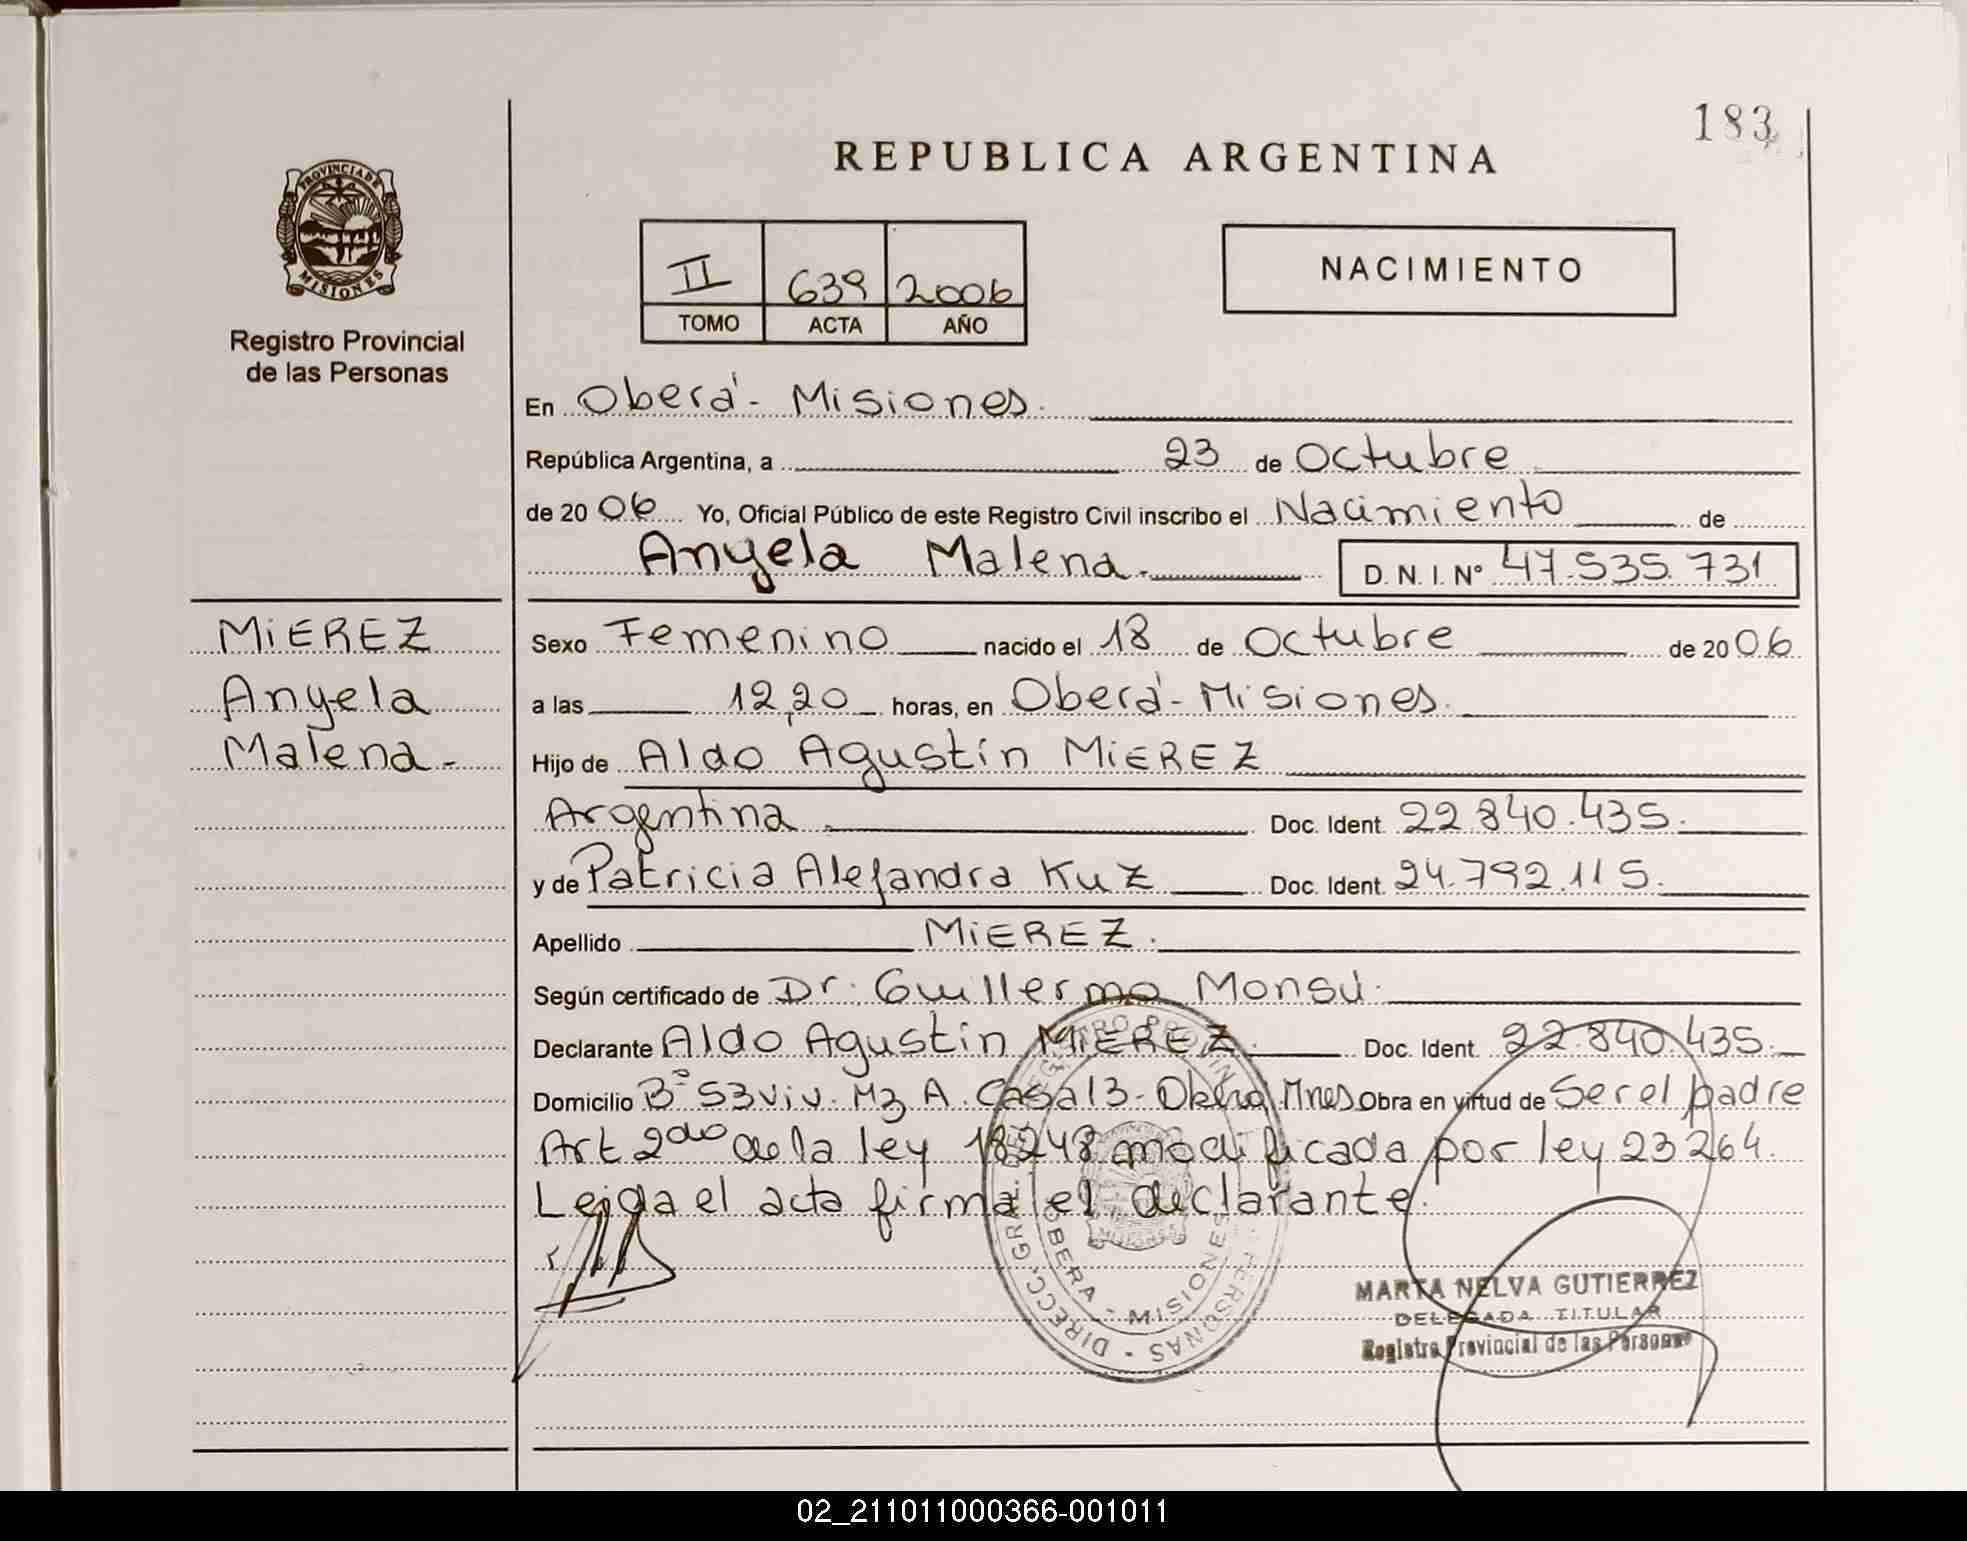 183
REPUBLICA ARGENTINA
PROVINCIA DE
MISIONES
Registro Provincial
de las Personas
II 639 2006
TOMO ACTA AÑO
NACIMIENTO
En Oberá - Misiones.
República Argentina, a 23 de Octubre
de 2006 Yo, Oficial Público de este Registro Civil inscribo el Nacimiento de
Anyela Malena.- D.N.I. Nº 47.535.731
MiEREZ
Anyela
Malena.-
Sexo Femenino nacido el 18 de Octubre de 2006
a las 12,20 horas, en Oberá - Misiones.
Hijo de Aldo Agustín MiEREZ
Argentina. Doc. Ident. 22.840.435.
y de Patricia Alejandra Kuz Doc. Ident. 24.792.115.
Apellido MiEREZ.
Según certificado de Dr. Guillermo Monsú.
Declarante Aldo Agustín MiEREZ. Doc. Ident. 22.840.435.
Domicilio Bº 53 viv. Mz A. Casa 13 - Oberá Mnes Obra en virtud de Ser el padre
Art 2do de la ley 18248 modificada por ley 23264.
Leida el acta firma el declarante.
DIRECC. GRAL. DEL REGISTRO PROVINCIAL DE LAS PERSONAS - OBERA - MISIONES
MARTA NELVA GUTIERREZ
DELEGADA TITULAR
Registro Provincial de las Personas
02_211011000366-001011